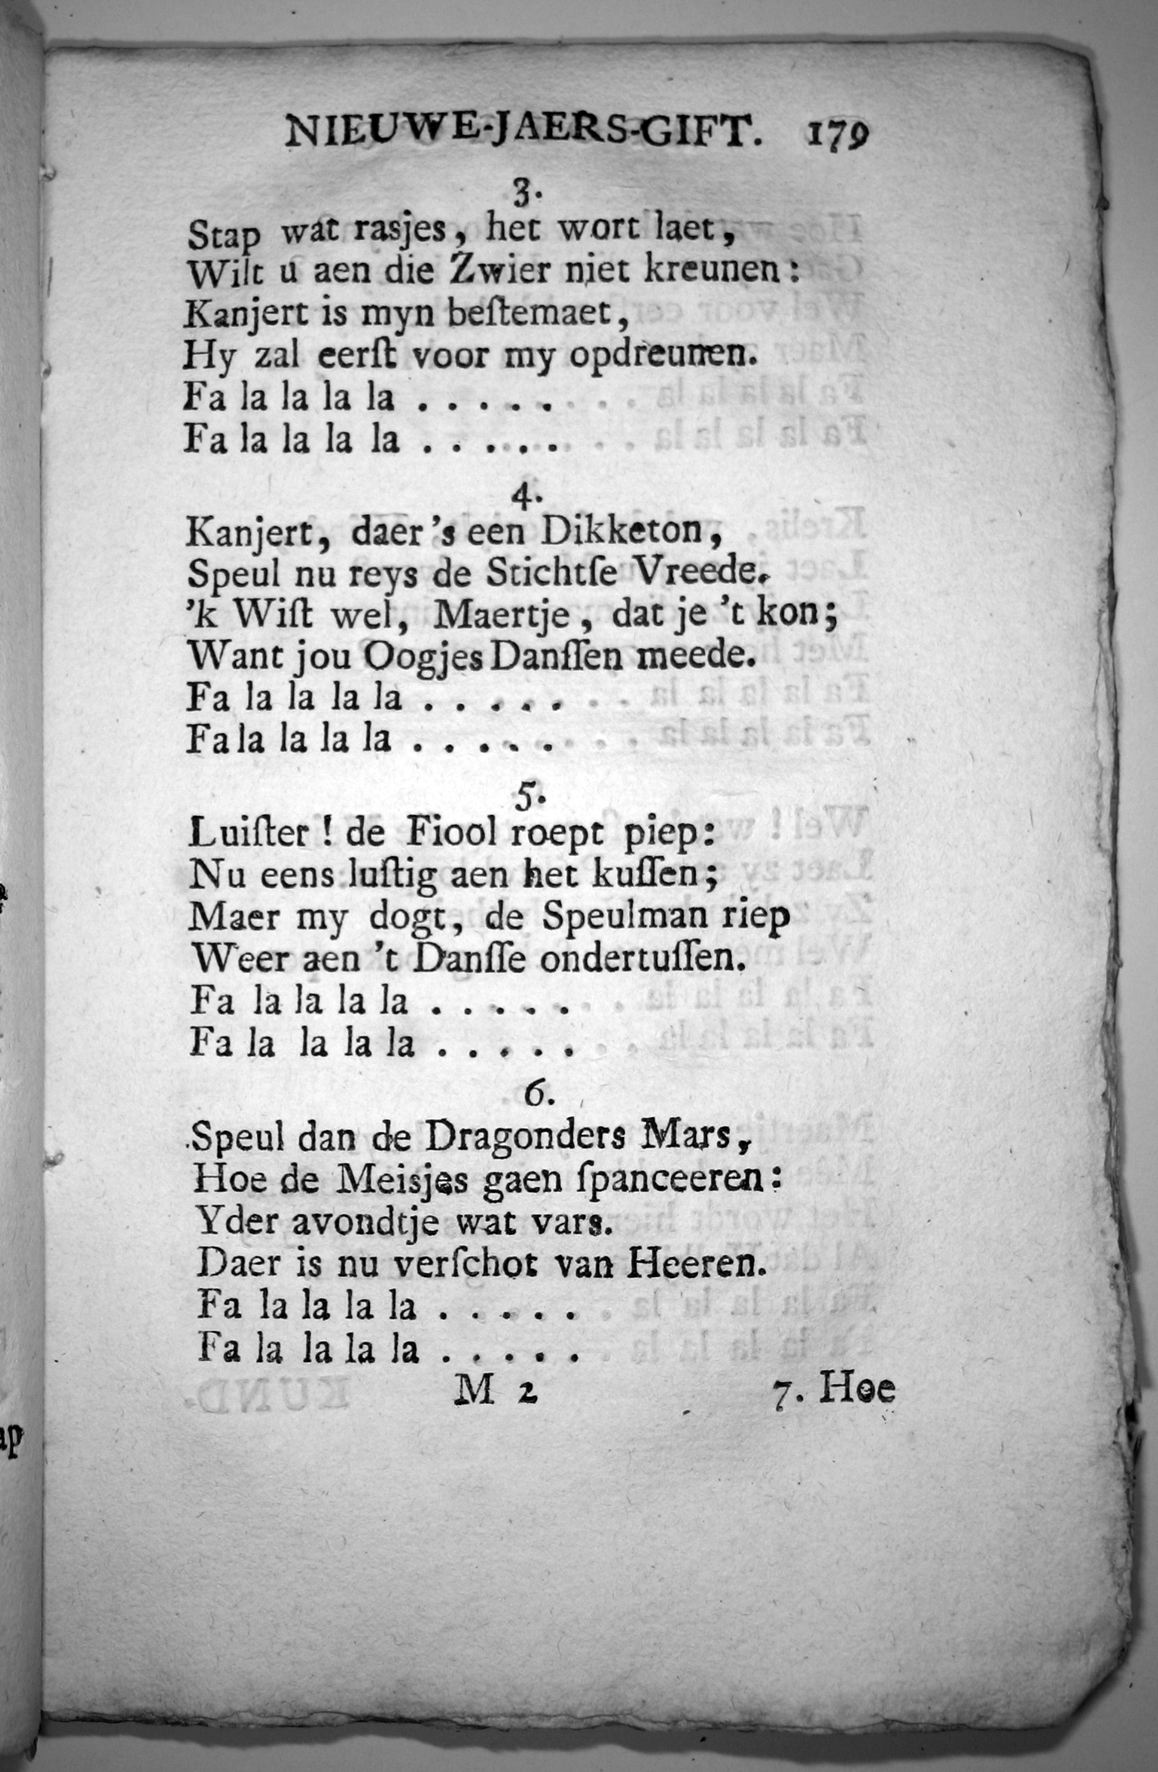 NIEUWE-JAERS-GIFT. 179
3.
Stap wat rasjes, het wort laet,
Wilt u aen die Zwier niet kreunen:
Kanjert is myn beſtemaet,
Hy zal eerſt voor my opdreunen.
Fa la la la la . . . . .
Fa la la la la . . . . .
4.
Kanjert, daer 's een Dikketon,
Speul nu reys de Stichtſe Vreede.
'k Wiſt wel, Maertje, dat je 't kon;
Want jou Oogjes Danſſen meede.
Fa la la la la . . . . .
Fa la la la la . . . . .
5.
Luiſter! de Fiool roept piep:
Nu eens luſtig aen het kuſſen;
Maer my dogt, de Speulman riep
Weer aen 't Danſſe ondertuſſen.
Fa la la la la . . . . .
Fa la la la la . . . . .
6.
Speul dan de Dragonders Mars,
Hoe de Meisjes gaen ſpanceeren:
Yder avondtje wat vars.
Daer is nu verſchot van Heeren.
Fa la la la la . . . . .
Fa la la la la . . . . .
M 2 7. Hoe